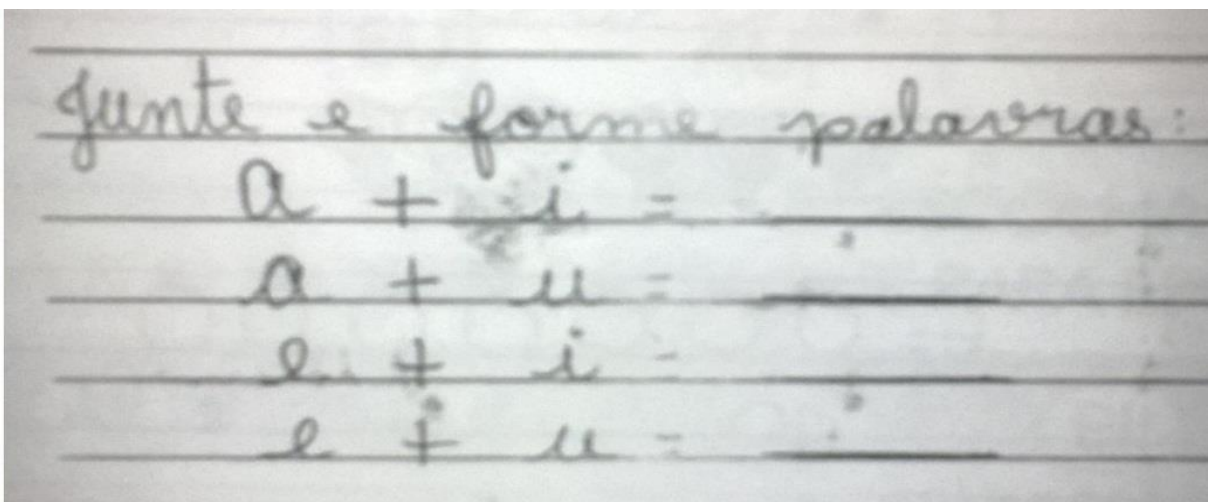 Junte e forme palavras:
a + i = ______
a + u = ______
e + i = ______
e + u = ______